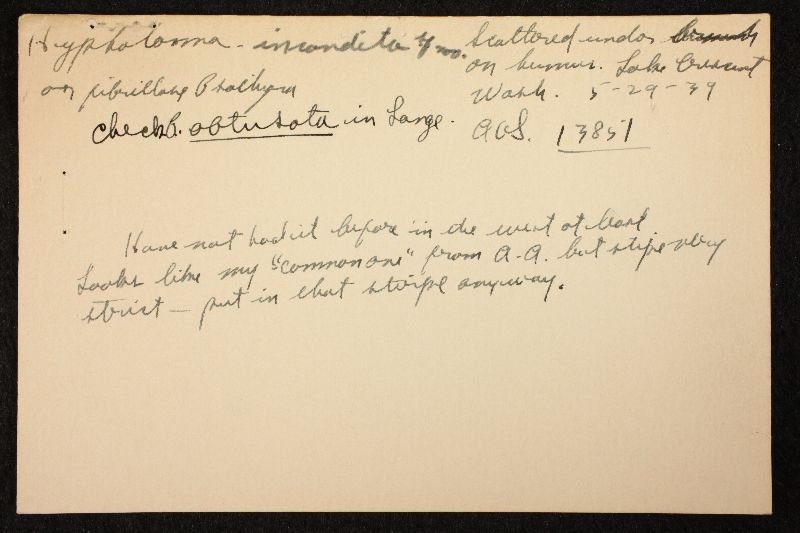 Hypholoma - incondita
or fibrillose Psathyra
check P. obtusata in Lange.
Scattered under
on humus. Lake Crescent
Wash. 5-29-39
AHS. 13851
Have not had it before in the west at least.
Looks like my "common one" from A.A. but stipe very
strict — put in that stirpe anyway.